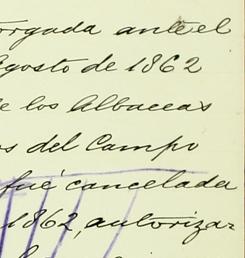 orgada ante el
Agosto de 1862
e los Albaceas
os del Campo
fué cancelada
1862, autoriza-